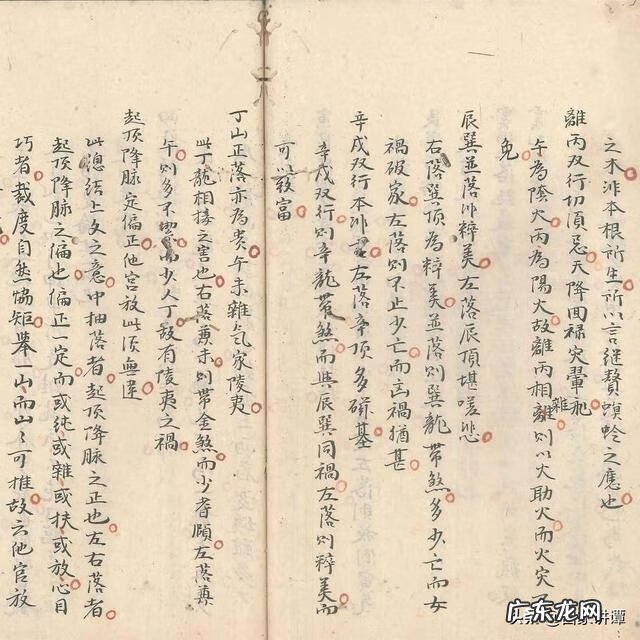 之木非本根所生所以言继贅螟蛉之應也
離丙双行切須忌天降囬禄灾翬飛
午為陰火丙為陽火故離丙相雜則以火助火而火灾
免
辰巽並落非粹美左落辰頂堪嗟悲
右落巽頂為粹美並落則巽龍帶煞多少亡而女
禍破家左落則不止少亡而禍猶甚
辛戌双行本非左落辛頂多磁基
辛戌双行則辛龍帶煞而與辰巽同禍左落則粹美而
可以發富
丁山正落亦為贵午未雜氣家陵夷
此丁龍相接之害也右落兼未則帶金煞而少耆頤左落兼
午則多不少人丁故有陵夷之禍
起頂降脉定偏正他宫放此須無違
此總結上文之意中抽落者起頂降脉之正也左右落者
起頂降脉之偏也偏正一定而或纯或雜或扶或放心目
巧者裁度自然恊矩舉一山而山々可推故云他宫放
广东龙网